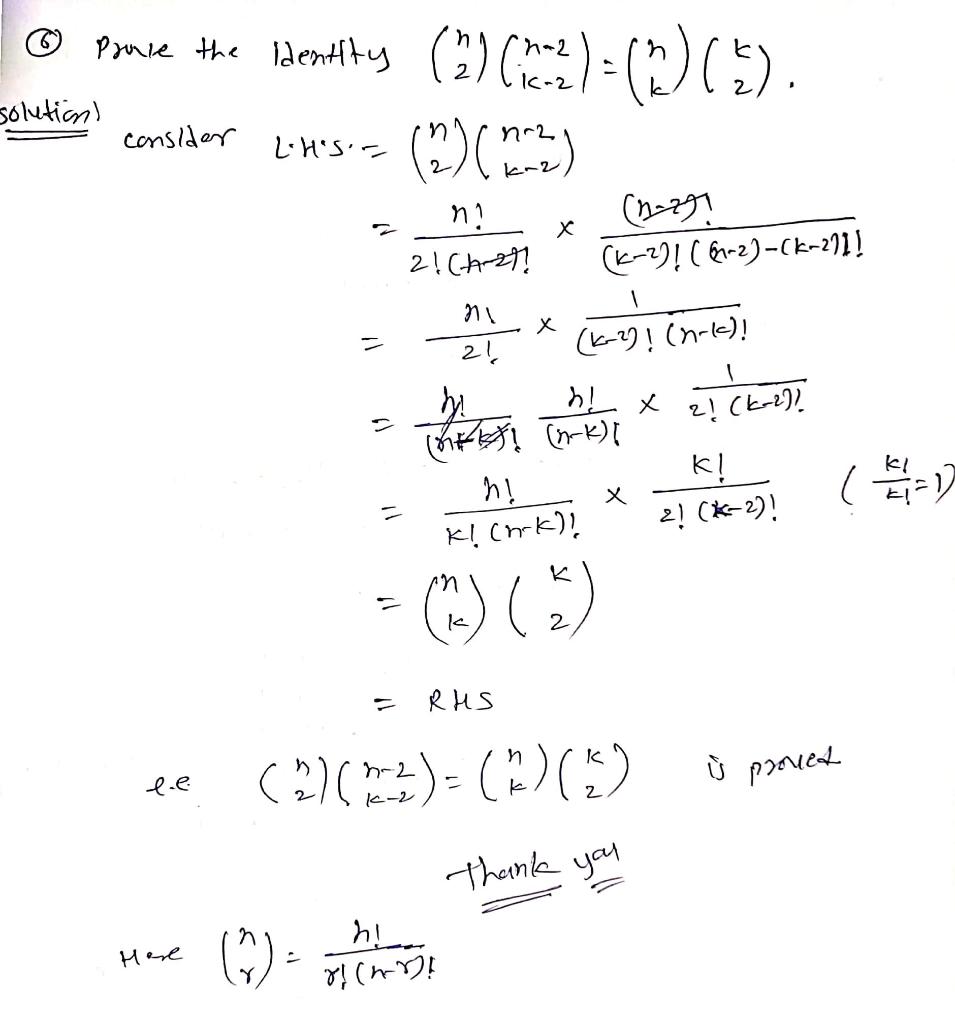 ⑥ Prove the Identity (n 2) (n-2 k-2) = (n k) (k 2).
solution)
consider L.H.S. = (n 2) (n-2 k-2)
= n! / 2! (n-2)! × (n-2)! / (k-2)! ((n-2)-(k-2))!
= n! / 2! × 1 / (k-2)! (n-k)!
= n! / (n-k)! × 1 / 2! (k-2)!
= n! / k! (n-k)! × k! / 2! (k-2)! ( k! / k! = 1)
= (n k) (k 2)
= RHS
i.e (n 2) (n-2 k-2) = (n k) (k 2) is proved
Thank you
Here (n r) = n! / r! (n-r)!